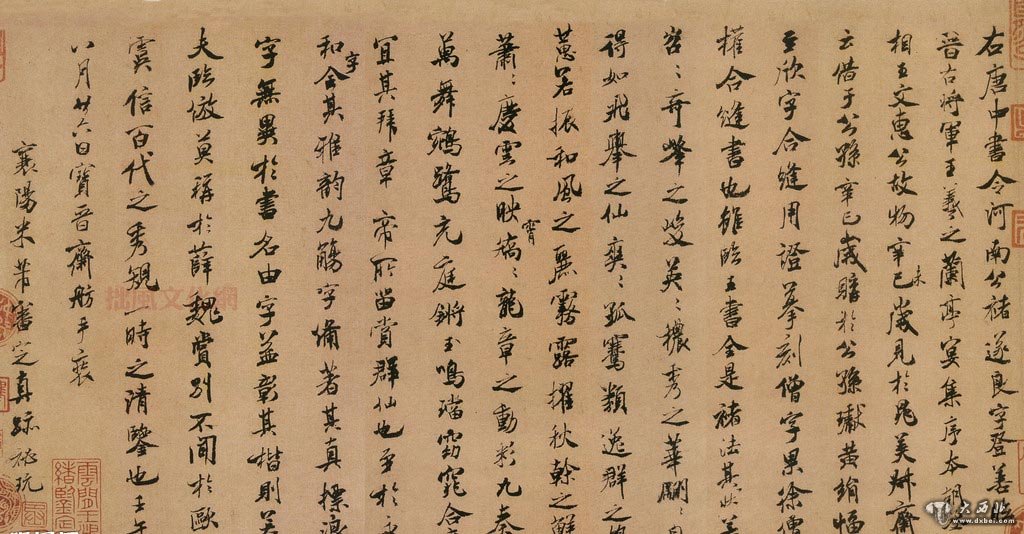 右唐中書令河南公褚遂良字登善臨
晉右將軍王羲之蘭亭宴集序本朝丞
相王文惠公故物辛未歲見於晁美叔齋
云借于公孫辛巳歲購於公孫瓛黃絹幅
至欣字合縫用證摹刻僧字果徐僧
權合縫書也雖臨王書全是褚法其狀若
岩岩奇峰之峻英英穠秀之華翩翩自
得如飛舉之仙爽爽孤騫類逸群之鶴
蕙若振和風之麗霧露擢秋幹之鮮
蕭蕭慶雲之映霄矯矯龍章之動彩九奏
萬舞鵷鷺充庭鏘玉鳴璫窈窕合
宜其拜章帝所留賞群仙也至於永
和字全其雅韵九觴字備著其真標浪
字無異於書名由字益彰其楷則若
夫臨倣莫稱於薛魏賞別不聞於歐
虞信百代之秀規一時之清鑒也壬午
八月廿六日寶晉齋舫手裝
襄陽米芾審定真跡秘玩
拙風文化網
大西北
www.dxbei.com